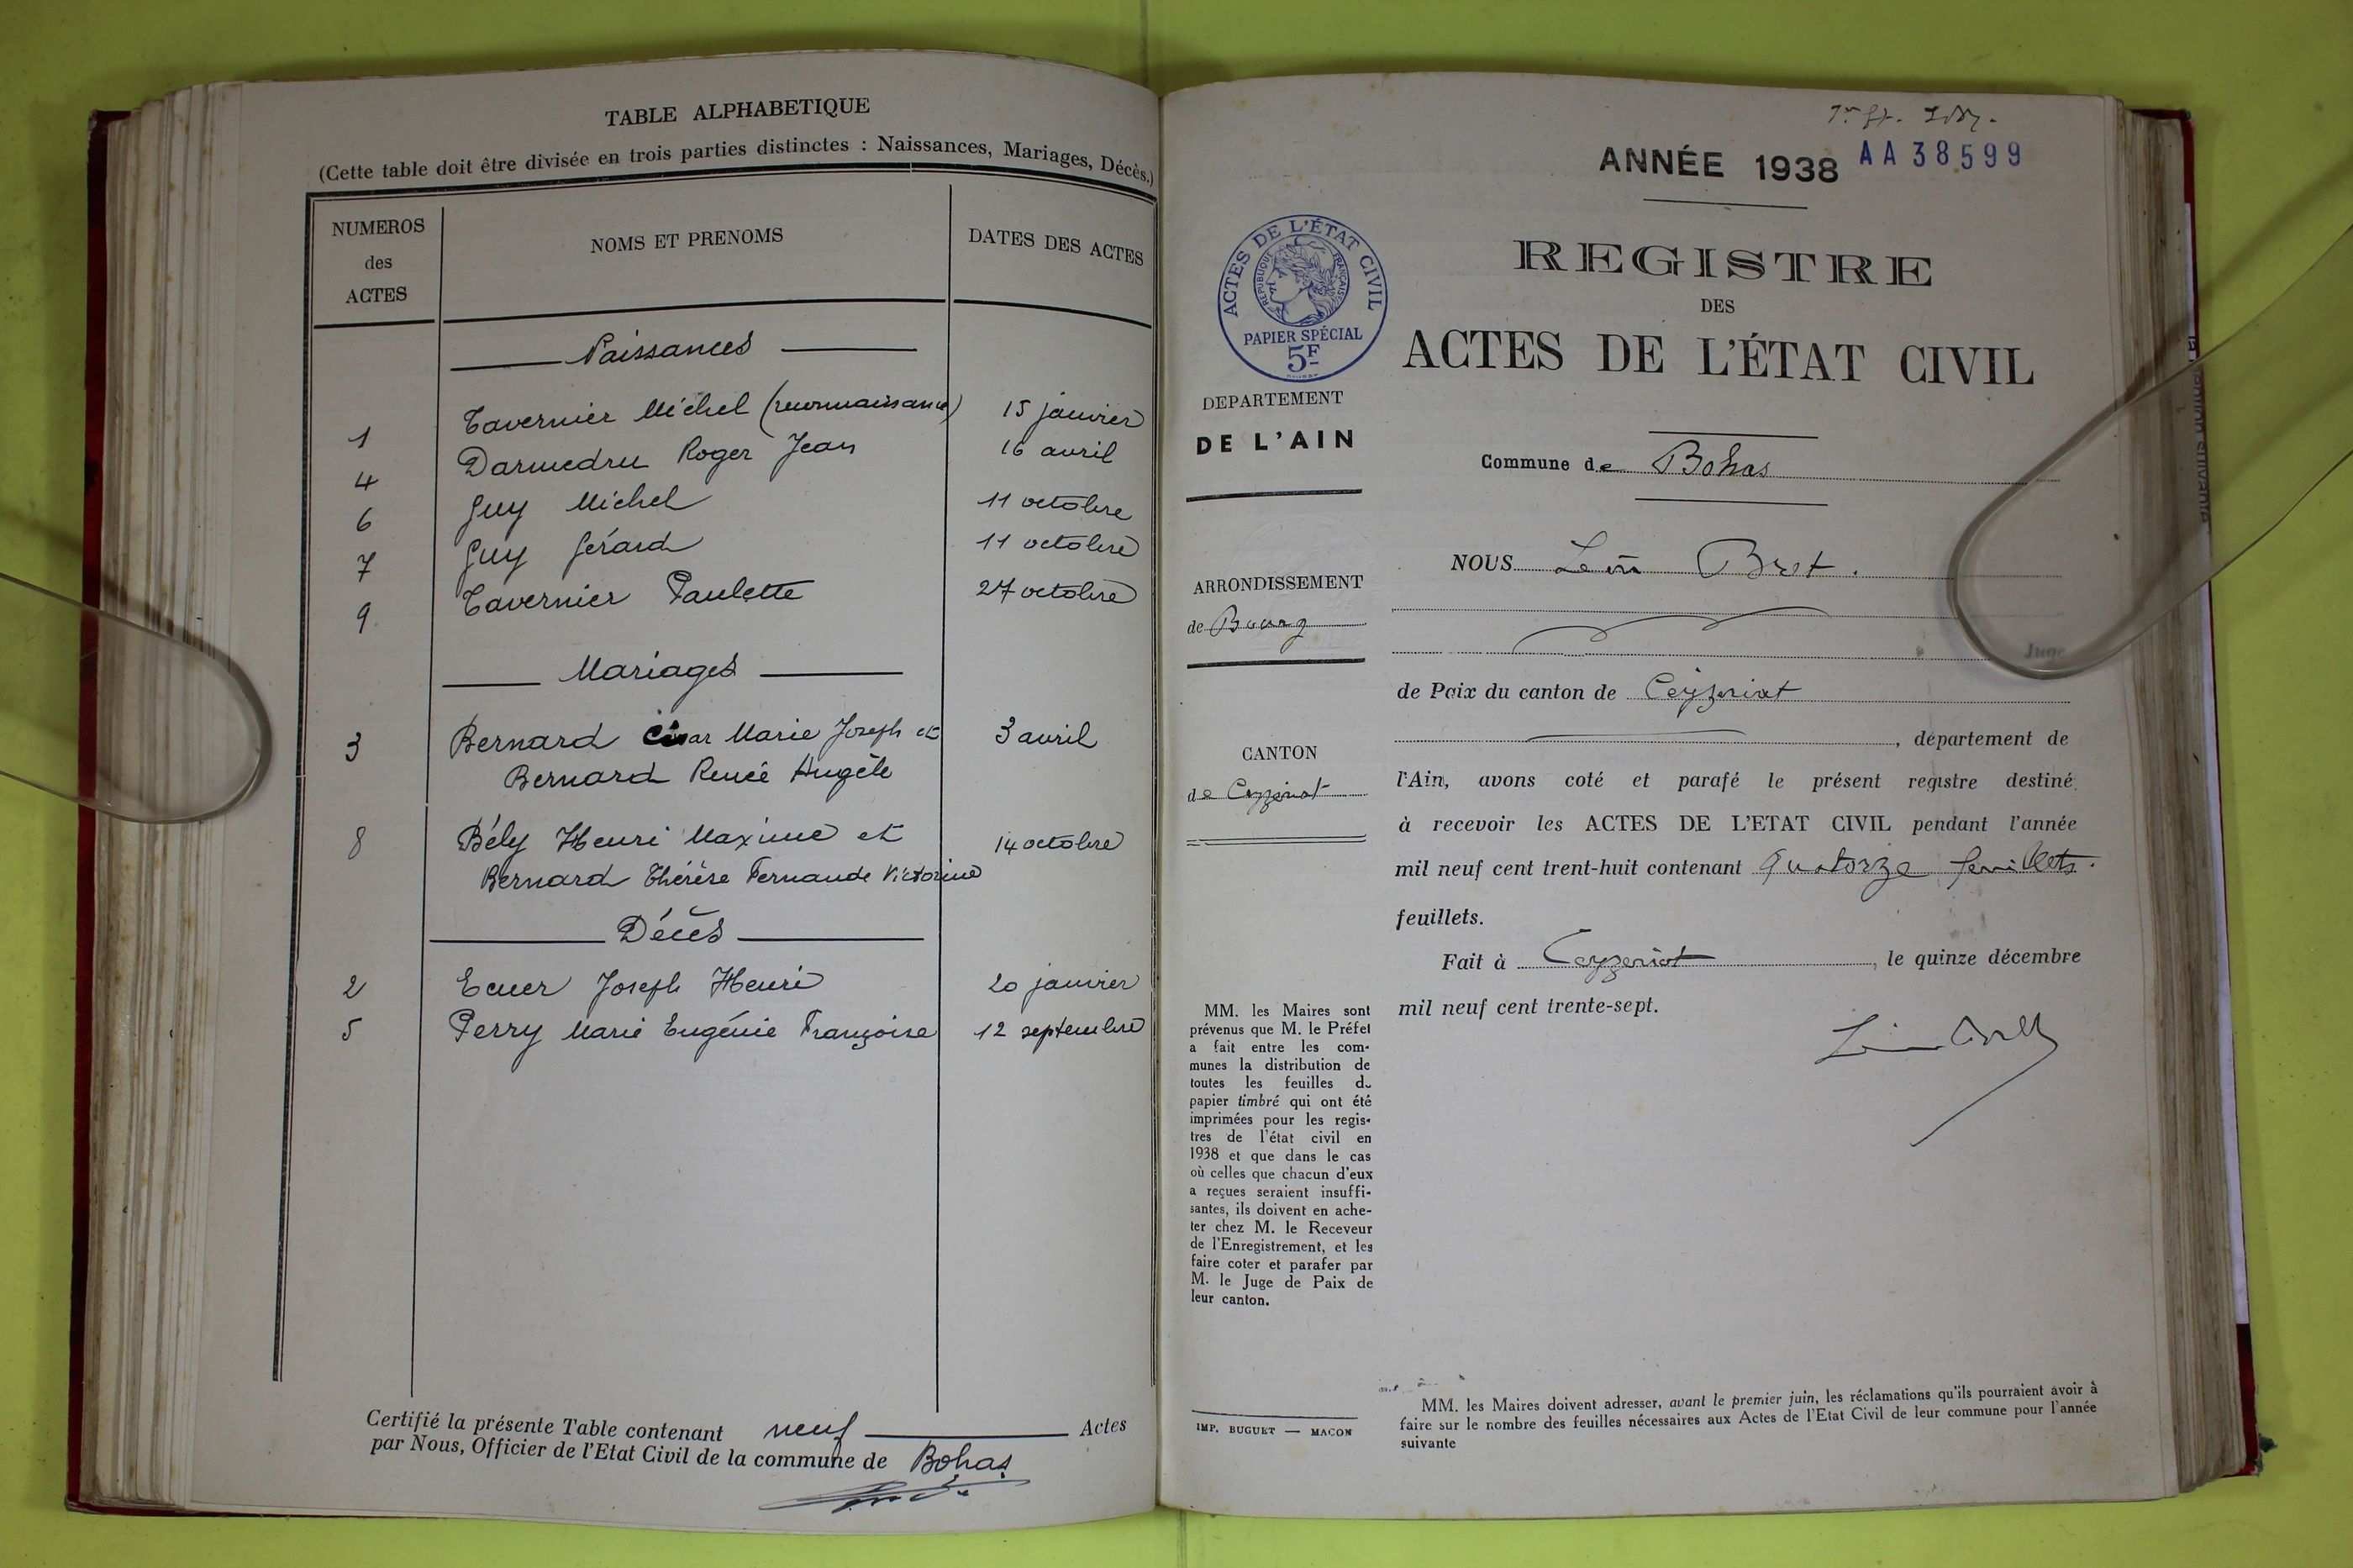 TABLE ALPHABETIQUE
(Cette table doit être divisée en trois parties distinctes : Naissances, Mariages, Décès.)
NUMEROS
des
ACTES
NOMS ET PRENOMS
DATES DES ACTES
Naissances
1 Tavernier Michel (reconnaissance) 15 janvier
4 Darmedru Roger Jean 16 avril
6 Guy Michel 11 octobre
7 Guy Gérard 11 octobre
9 Tavernier Paulette 27 octobre
Mariages
3 Bernard César Marie Joseph et 3 avril
Bernard Renée Angèle
8 Bély Henri Maxime et 14 octobre
Bernard Thérèse Fernande Victorine
Décès
2 Ecuer Joseph Henri 20 janvier
5 Perry Marie Eugénie Françoise 12 septembre
Certifié la présente Table contenant neuf Actes
par Nous, Officier de l'Etat Civil de la commune de Bohas
ANNÉE 1938 AA38599
ACTES DE L'ÉTAT CIVIL
RÉPUBLIQUE FRANÇAISE
PAPIER SPÉCIAL
5F
REGISTRE
DES
ACTES DE L'ÉTAT CIVIL
DEPARTEMENT
DE L'AIN
ARRONDISSEMENT
de Bourg
CANTON
de Ceyzeriat
MM. les Maires sont
prévenus que M. le Préfet
a fait entre les com-
munes la distribution de
toutes les feuilles du
papier timbré qui ont été
imprimées pour les regis-
tres de l'état civil en
1938 et que dans le cas
où celles que chacun d'eux
a reçues seraient insuffi-
santes, ils doivent en ache-
ter chez M. le Receveur
de l'Enregistrement, et les
faire coter et parafer par
M. le Juge de Paix de
leur canton.
IMP. BUGUET — MACON
Commune de Bohas
NOUS Léon Bret.
Juge
de Paix du canton de Ceyzeriat
, département de
l'Ain, avons coté et parafé le présent registre destiné
à recevoir les ACTES DE L'ETAT CIVIL pendant l'année
mil neuf cent trent-huit contenant quatorze feuillets.
feuillets.
Fait à Ceyzeriat, le quinze décembre
mil neuf cent trente-sept.
MM. les Maires doivent adresser, avant le premier juin, les réclamations qu'ils pourraient avoir à
faire sur le nombre des feuilles nécessaires aux Actes de l'Etat Civil de leur commune pour l'année
suivante